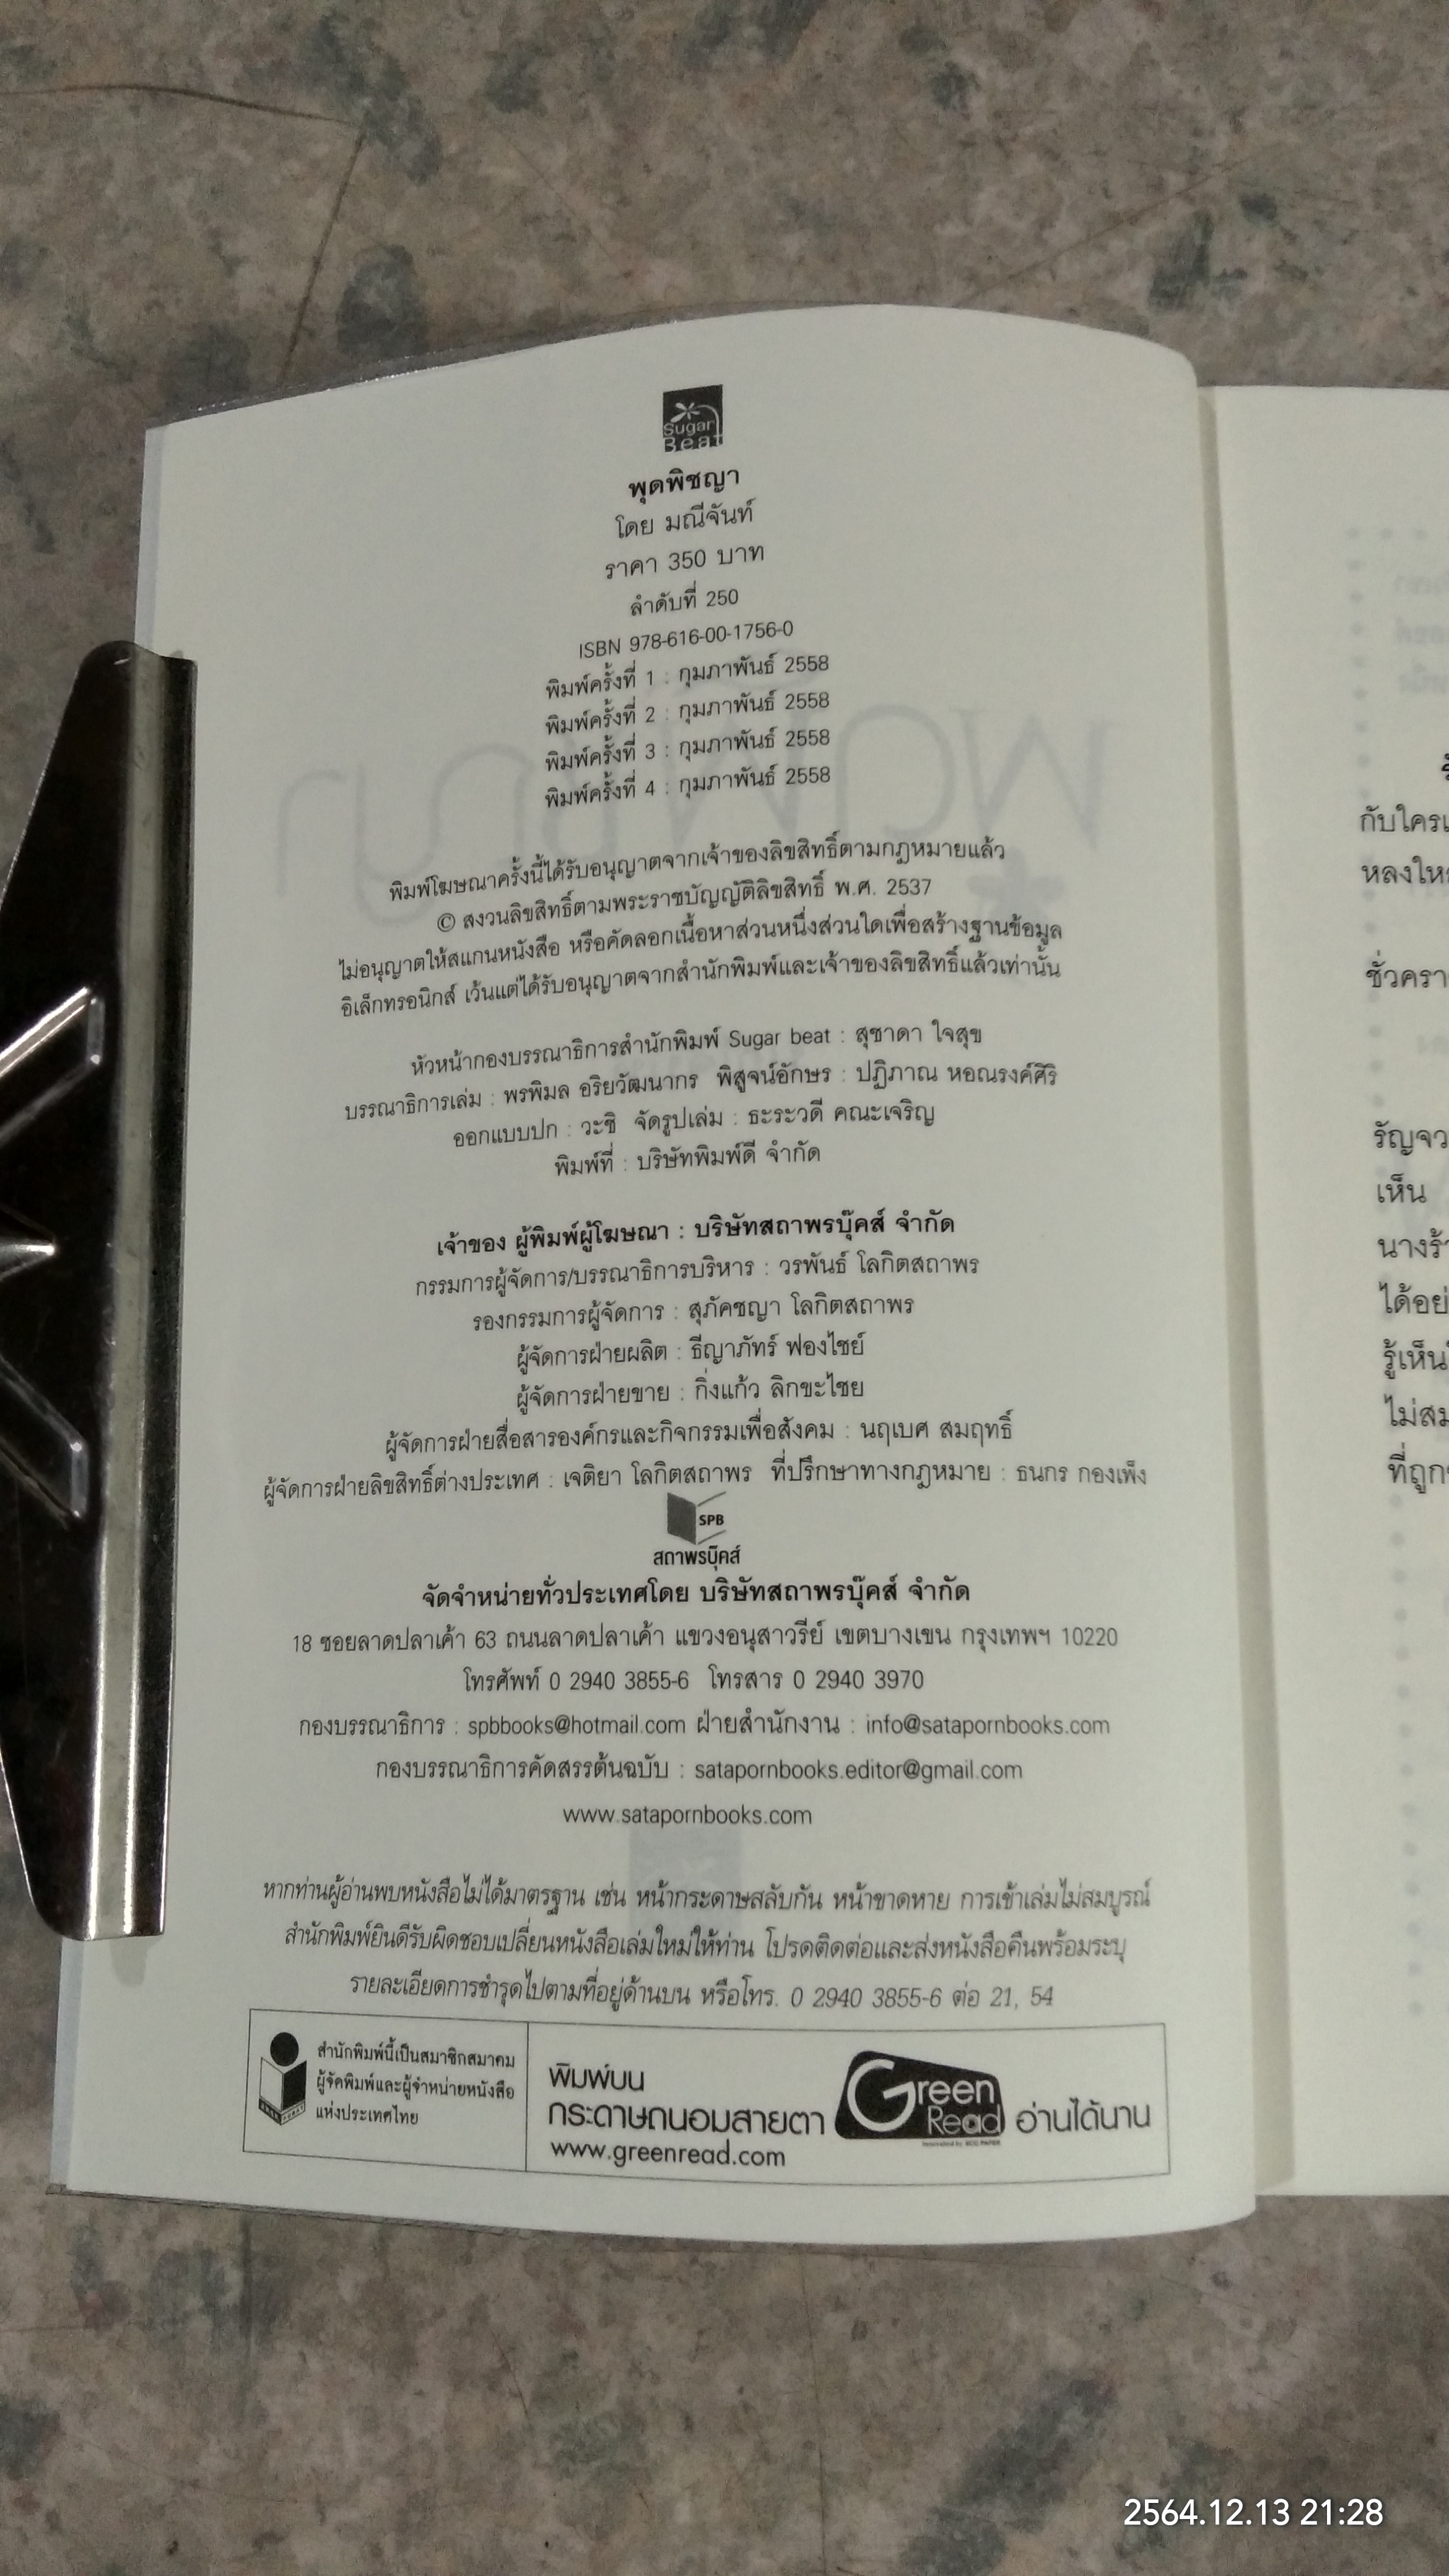 Sugar
Beat
พุดพิชญา
โดย มณีจันท์
ราคา 350 บาท
ลำดับที่ 250
ISBN 978-616-00-1756-0
พิมพ์ครั้งที่ 1 : กุมภาพันธ์ 2558
พิมพ์ครั้งที่ 2 : กุมภาพันธ์ 2558
พิมพ์ครั้งที่ 3 : กุมภาพันธ์ 2558
พิมพ์ครั้งที่ 4 : กุมภาพันธ์ 2558
พิมพ์โฆษณาครั้งนี้ได้รับอนุญาตจากเจ้าของลิขสิทธิ์ตามกฎหมายแล้ว
© สงวนลิขสิทธิ์ตามพระราชบัญญัติลิขสิทธิ์ พ.ศ. 2537
ไม่อนุญาตให้สแกนหนังสือ หรือคัดลอกเนื้อหาส่วนหนึ่งส่วนใดเพื่อสร้างฐานข้อมูล
อิเล็กทรอนิกส์ เว้นแต่ได้รับอนุญาตจากสำนักพิมพ์และเจ้าของลิขสิทธิ์แล้วเท่านั้น
หัวหน้ากองบรรณาธิการสำนักพิมพ์ Sugar beat : สุชาดา ใจสุข
บรรณาธิการเล่ม : พรพิมล อริยวัฒนากร พิสูจน์อักษร : ปฏิภาณ หอณรงค์ศิริ
ออกแบบปก : วะชิ จัดรูปเล่ม : ธะระวดี คณะเจริญ
พิมพ์ที่ : บริษัทพิมพ์ดี จำกัด
เจ้าของ ผู้พิมพ์ผู้โฆษณา : บริษัทสถาพรบุ๊คส์ จำกัด
กรรมการผู้จัดการ/บรรณาธิการบริหาร : วรพันธ์ โลกิตสถาพร
รองกรรมการผู้จัดการ : สุภัคชญา โลกิตสถาพร
ผู้จัดการฝ่ายผลิต : ธีญาภัทร์ ฟองไชย์
ผู้จัดการฝ่ายขาย : กิ่งแก้ว ลิกขะไชย
ผู้จัดการฝ่ายสื่อสารองค์กรและกิจกรรมเพื่อสังคม : นฤเบศ สมฤทธิ์
ผู้จัดการฝ่ายลิขสิทธิ์ต่างประเทศ : เจติยา โลกิตสถาพร ที่ปรึกษาทางกฎหมาย : ธนกร กองเพ็ง
SPB
สถาพรบุ๊คส์
จัดจำหน่ายทั่วประเทศโดย บริษัทสถาพรบุ๊คส์ จำกัด
18 ซอยลาดปลาเค้า 63 ถนนลาดปลาเค้า แขวงอนุสาวรีย์ เขตบางเขน กรุงเทพฯ 10220
โทรศัพท์ 0 2940 3855-6 โทรสาร 0 2940 3970
กองบรรณาธิการ : spbbooks@hotmail.com ฝ่ายสำนักงาน : info@satapornbooks.com
กองบรรณาธิการคัดสรรต้นฉบับ : satapornbooks.editor@gmail.com
www.satapornbooks.com
หากท่านผู้อ่านพบหนังสือไม่ได้มาตรฐาน เช่น หน้ากระดาษสลับกัน หน้าขาดหาย การเข้าเล่มไม่สมบูรณ์
สำนักพิมพ์ยินดีรับผิดชอบเปลี่ยนหนังสือเล่มใหม่ให้ท่าน โปรดติดต่อและส่งหนังสือคืนพร้อมระบุ
รายละเอียดการชำรุดไปตามที่อยู่ด้านบน หรือโทร. 0 2940 3855-6 ต่อ 21, 54
สำนักพิมพ์นี้เป็นสมาชิกสมาคม
ผู้จัดพิมพ์และผู้จำหน่ายหนังสือ
แห่งประเทศไทย
พิมพ์บน
กระดาษถนอมสายตา Green Read อ่านได้นาน
www.greenread.com
กับใคร
ชั่วครา
รัญจว
เห็น
นางร้
ได้อย่
รู้เห็น
ไม่สม
ที่ถูก
2564.12.13 21:28